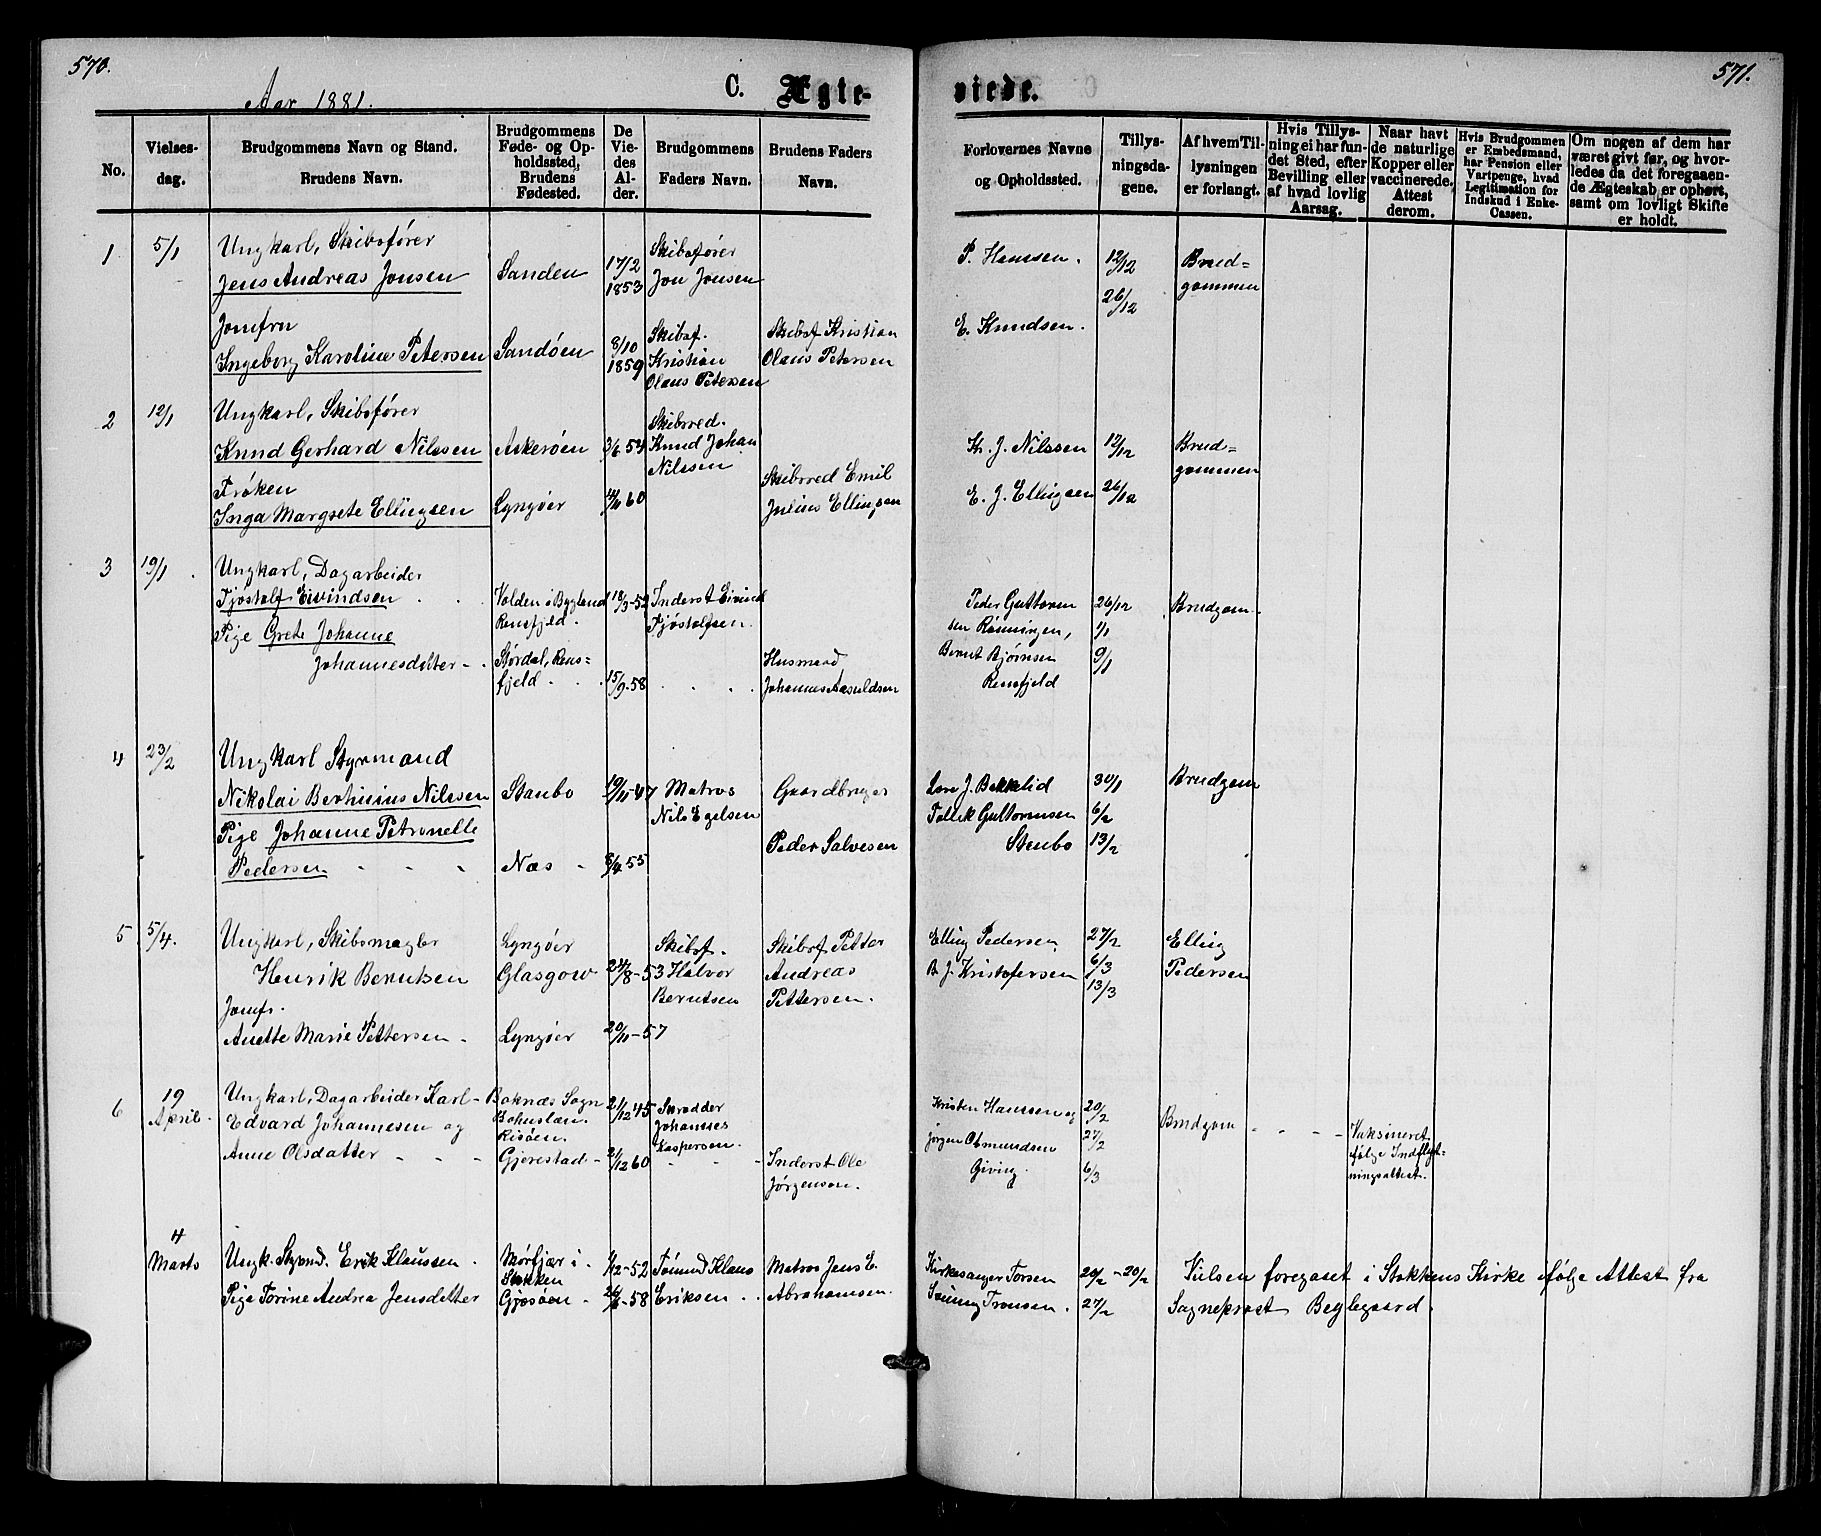 570.
Aar 1881.
C. Ægte-
No.
Vielses-
dag.
Brudgommens Navn og Stand.
Brudens Navn.
Brudgommens
Føde- og Op-
holdssted,
Brudens
Fødested.
De
Vie-
des
Al-
der.
Brudgommens
Faders Navn.
Brudens Faders
Navn.
1
5/1
Ungkarl, Skibsfører
Jens Andreas Jonsen
Sanden
17/2
1853
Skibsfører
Jon Jonsen
Jomfru
Ingeborg Karoline Petersen
Sandøen
8/10
1859
Skibsf.
Kristian
Olaus Petersen
Skibsf Kristian
Olaus Petersen
2
12/1
Ungkarl, Skibsfører
Knud Gerhard Nilssen
Askerøen
3/6 54
Skibsred.
Knud Johan
Nilssen
Frøken
Inga Margrete Ellingsen
Lyngøer
60
Skibsred Emil
Julius Ellingsen
3
19/1
Ungkarl, Dagarbeider
Tjøstolf Eivindsen
Volden i Bygland
Rensfjeld.
18/3-52
Inderst Eivind
Tjøstolfsen.
Pige Grete Johanne
Johannesdatter
Størdal, Rens-
fjeld
15/9-58
Husmand
Johannes Aasuldsen
4
23/2
Ungkarl Styrmand
Nikolai Berthinius Nilssen
Staubo
19/11-47
Matros
Nils Egelsen
Gaardbruger
Peder Salvesen
Pige Johanne Petronelle
Pedersen
Næs
8/4-55
5
5/4.
Ungkarl, Skibsmægler
Henrik Berntsen
Lyngøer
Glasgow
24/8-53
Skibsf.
Halvor
Berntsen
Skibsf Petter
Andreas
Pettersen.
Jomfr.
Anette Marie Pettersen
Lyngøer
20/11-57
6
19
April
Ungkarl, Dagarbeider Karl
Edvard Johannesen og
Anne Olsdatter
Boknæs Sogn
Bohuslæn
Risøen.
Gjerestad
21/12 45
21/12 60
Skrædder
Johannes
Kaspersen.
Inderst Ole
Jørgensen.
4
Marts
Ungk. Styrmd. Erik Klaussen
Pige Torine Andrea Jensdatter
Mørfjær i
Stokken
Gjesøen
4/12-52
-58
Tømmd Klaus
Eriksen
Matros Jens E.
Abrahamsen.
571.
viede.
Forlovernes Navne
og Opholdssted.
Tillys-
ningsda-
gene.
Af hvem Til-
lysningen
er forlangt.
Hvis Tillys-
ning ei har fun-
det Sted, efter
Bevilling eller
af hvad lovlig
Aarsag.
Naar havt
de naturlige
Kopper eller
vaccinerede,
Attest
derom.
Hvis Brudgommen
er Embedsmand,
har Pension eller
Vartpenge, hvad
Legitimation for
Indskud i Enke-
Cassen.
Om nogen af dem har
været givt før, og hvor-
ledes da det foregaaen-
de Ægteskab er ophørt,
samt om lovligt Skifte
er holdt.
P. Hanssen.
E. Knudsen.
12/12
26/12
Brud-
gommen
Kn. J. Nilssen
E. J. Ellingsen
12/12
26/12
Brud-
gommen
Peder Guttorm
sen Rønningen,
Bernt Bjørnsen
Rensfjeld
26/12
1/1
9/1
Brudgom
Lars J. Bakklid
Tallik Guttormsen
Staubo
30/1
6/2
13/2
Brudgom
Elling Pedersen
B. J. Kristofersen
27/2
6/3
13/3
Elling
Pedersen
Kristen Hanssen og
Jørgen Osmundsen
Giving.
20/2
27/2
6/3
Brudgom
Vaksineret
ifølge Indflyt-
ningsattest.
Kirkesanger Torsen
Tronsen.
20/2 - 20/2
27/2
Vielsen foregaaet i Stokkens Kirke ifølge Attest fra
Sogneprest Beglegaard.